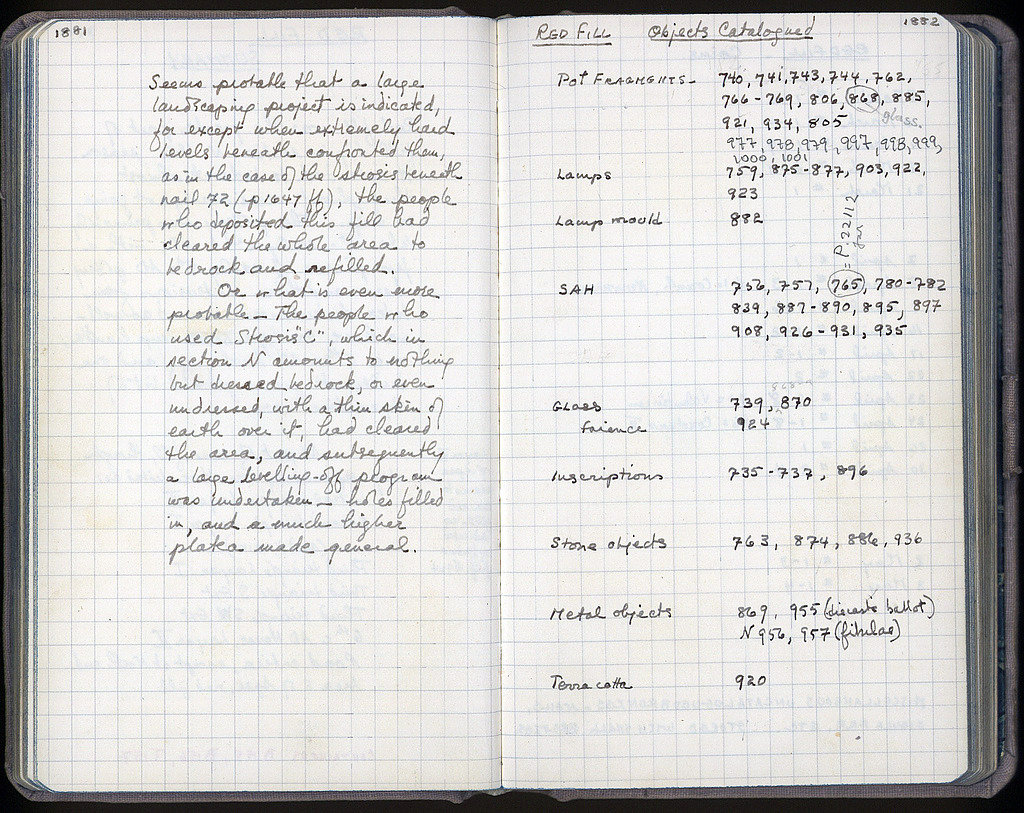 1881
Seems probable that a large
landscaping project is indicated,
for except when extremely hard
levels beneath confronted them,
as in the case of the strosis beneath
nail 72 (p 1647 ff), the people
who deposited this fill had
cleared the whole area to
bedrock and refilled.
Or what is even more
probable — The people who
used Strosis "C", which in
section N amounts to nothing
but dressed bedrock, or even
undressed, with a thin skin of
earth over it, had cleared
the area, and subsequently
a large levelling-off program
was undertaken — holes filled
in, and a much higher
plateia made general.
1882
RED FILL Objects Catalogued
POT FRAGMENTS - 740, 741, 743, 744, 762,
766-769, 806, 868, 885,
glass.
921, 934, 805
977, 978, 979, 997, 998, 999,
1000, 1001
Lamps 759, 875-877, 903, 922,
923
Lamp mould 882
= P. 22112
SAH 756, 757, 765, 780-782
839, 887-890, 895, 897
908, 926-931, 935
Glass 739, 870
Faience 924
Inscriptions 735-737, 896
Stone objects 763, 874, 886, 936
Metal objects 869, 955 (dicasts ballot)
N 956, 957 (fibulae)
Terra cotta 920